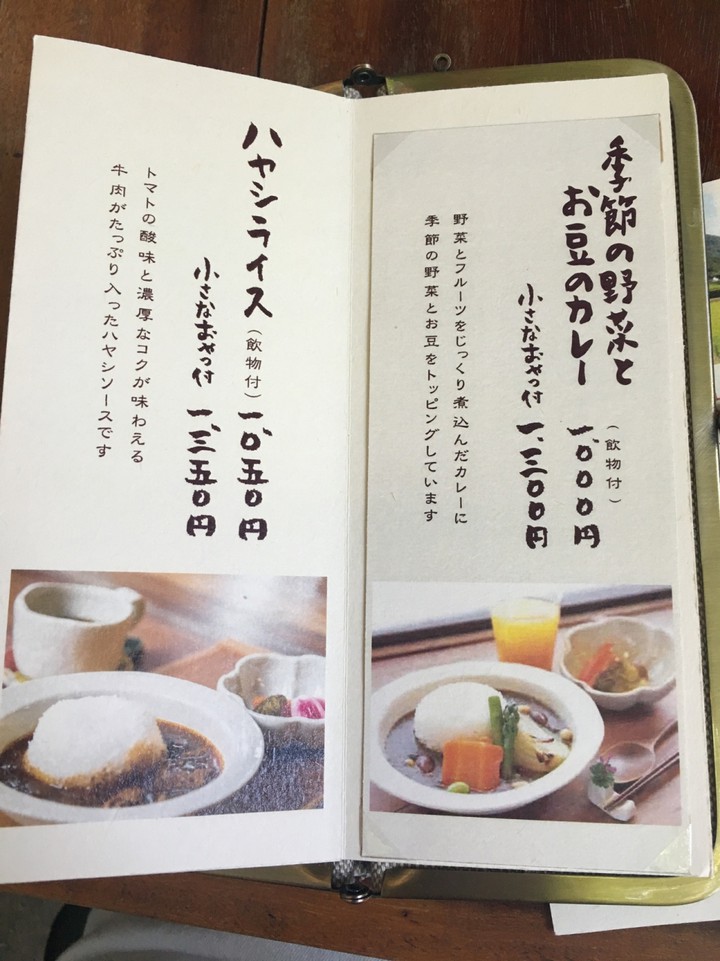 季節の野菜と
お豆のカレー
（飲物付）
一、〇〇〇円
小さなおやつ付 一、三〇〇円
野菜とフルーツをじっくり煮込んだカレーに
季節の野菜とお豆をトッピングしています
ハヤシライス（飲物付）一、〇五〇円
小さなおやつ付 一、三五〇円
トマトの酸味と濃厚なコクが味わえる
牛肉がたっぷり入ったハヤシソースです